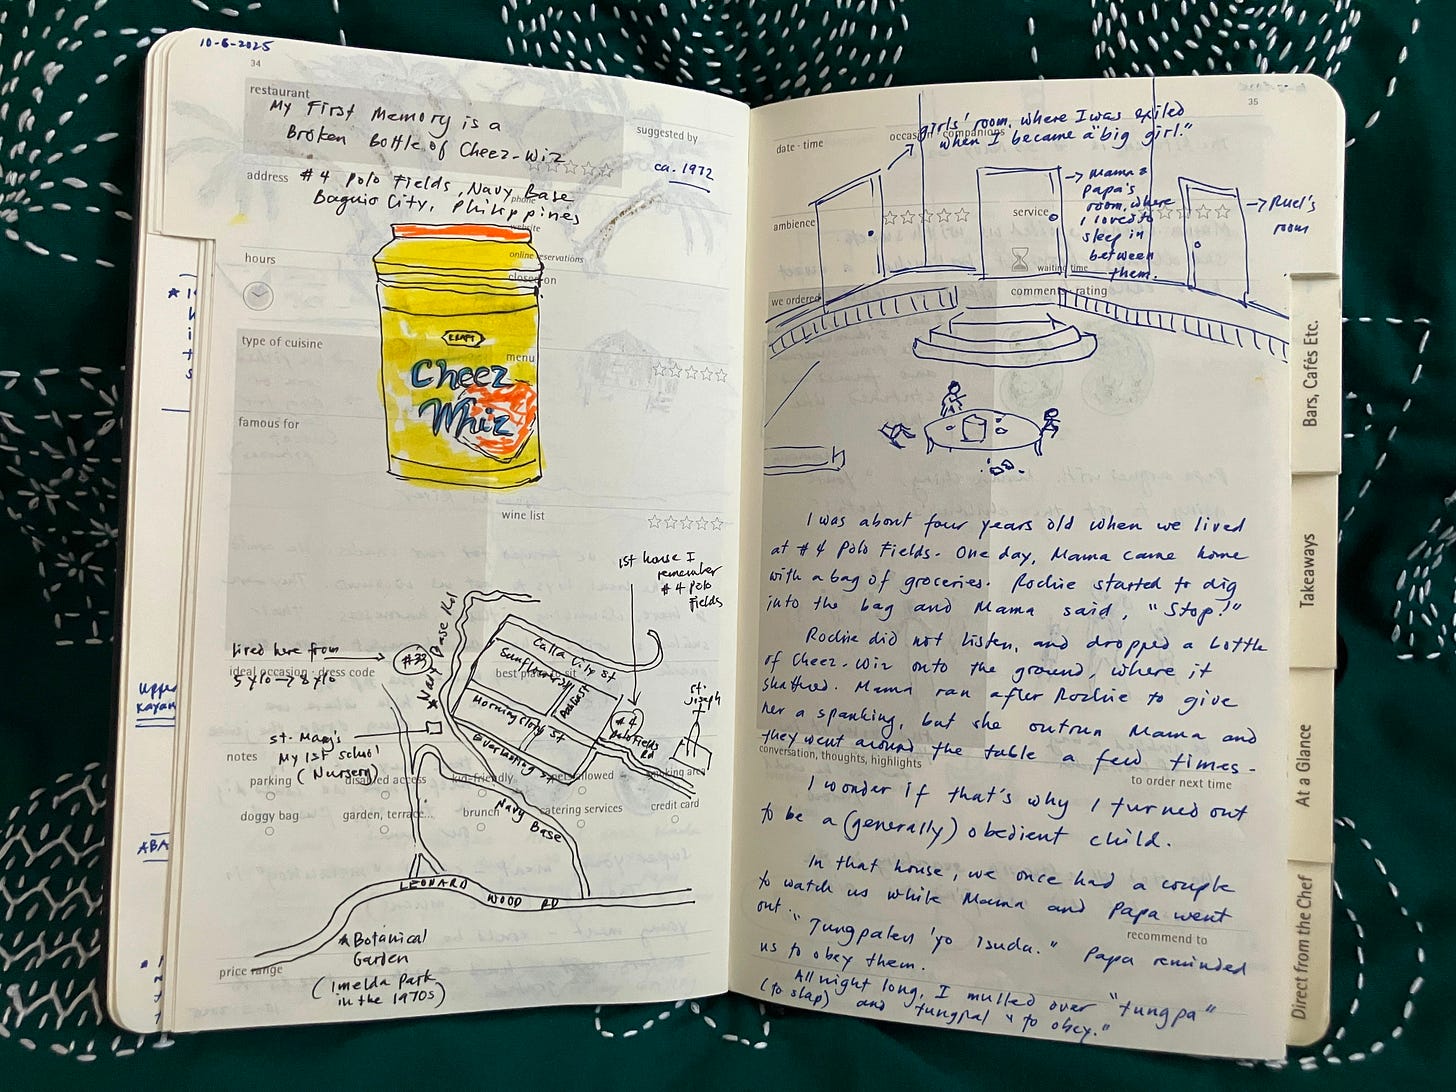 10-6-2025
34
restaurant
My First Memory is a
Broken Bottle of Cheez-Wiz
suggested by
ca. 1972
address
#4 Polo Fields, Navy Base
Baguio City, Philippines
phone
website
online reservations
hours
closed on
type of cuisine
KRAFT
menu
Cheez
Whiz
famous for
wine list
1st house I
remember
#4 Polo
Fields
lived here from
ideal occasion · dress code
#33
Navy Base Rd
Calla Lily St
Sunflower St
best place to sit
Morning Glory St
Everlasting St
#4
Polo Fields
Rd
St.
Joseph
St. Mary's
My 1st school
(Nursery)
notes
parking
disabled access
kid-friendly
pets allowed
smoking area
doggy bag
garden, terrace...
brunch
catering services
credit card
Navy Base
LEONARD WOOD RD
Botanical
Garden
(Imelda Park
in the 1970s)
price range
35
date · time
occasion · companions
girls' room, where I was exiled
when I became a "big girl."
ambience
service
waiting time
Mama &
Papa's
room, where
I loved to
sleep in
between
them.
Ruel's
room
we ordered
comment
rating
I was about four years old when we lived
at #4 Polo Fields. One day, Mama came home
with a bag of groceries. Rochie started to dig
into the bag and Mama said, "Stop!"
Rochie did not listen, and dropped a bottle
of Cheez-Wiz onto the ground, where it
shattered. Mama ran after Rochie to give
her a spanking, but she outran Mama and
they went around the table a few times.
conversation, thoughts, highlights
to order next time
I wonder if that's why I turned out
to be a (generally) obedient child.
In that house, we once had a couple
to watch us while Mama and Papa went
out. "Tungpalen 'yo isuda." Papa reminded
us to obey them.
recommend to
All night long, I mulled over "tungpa"
(to slap) and "tungpal" "to obey."
Bars, Cafés Etc.
Takeaways
At a Glance
Direct from the Chef